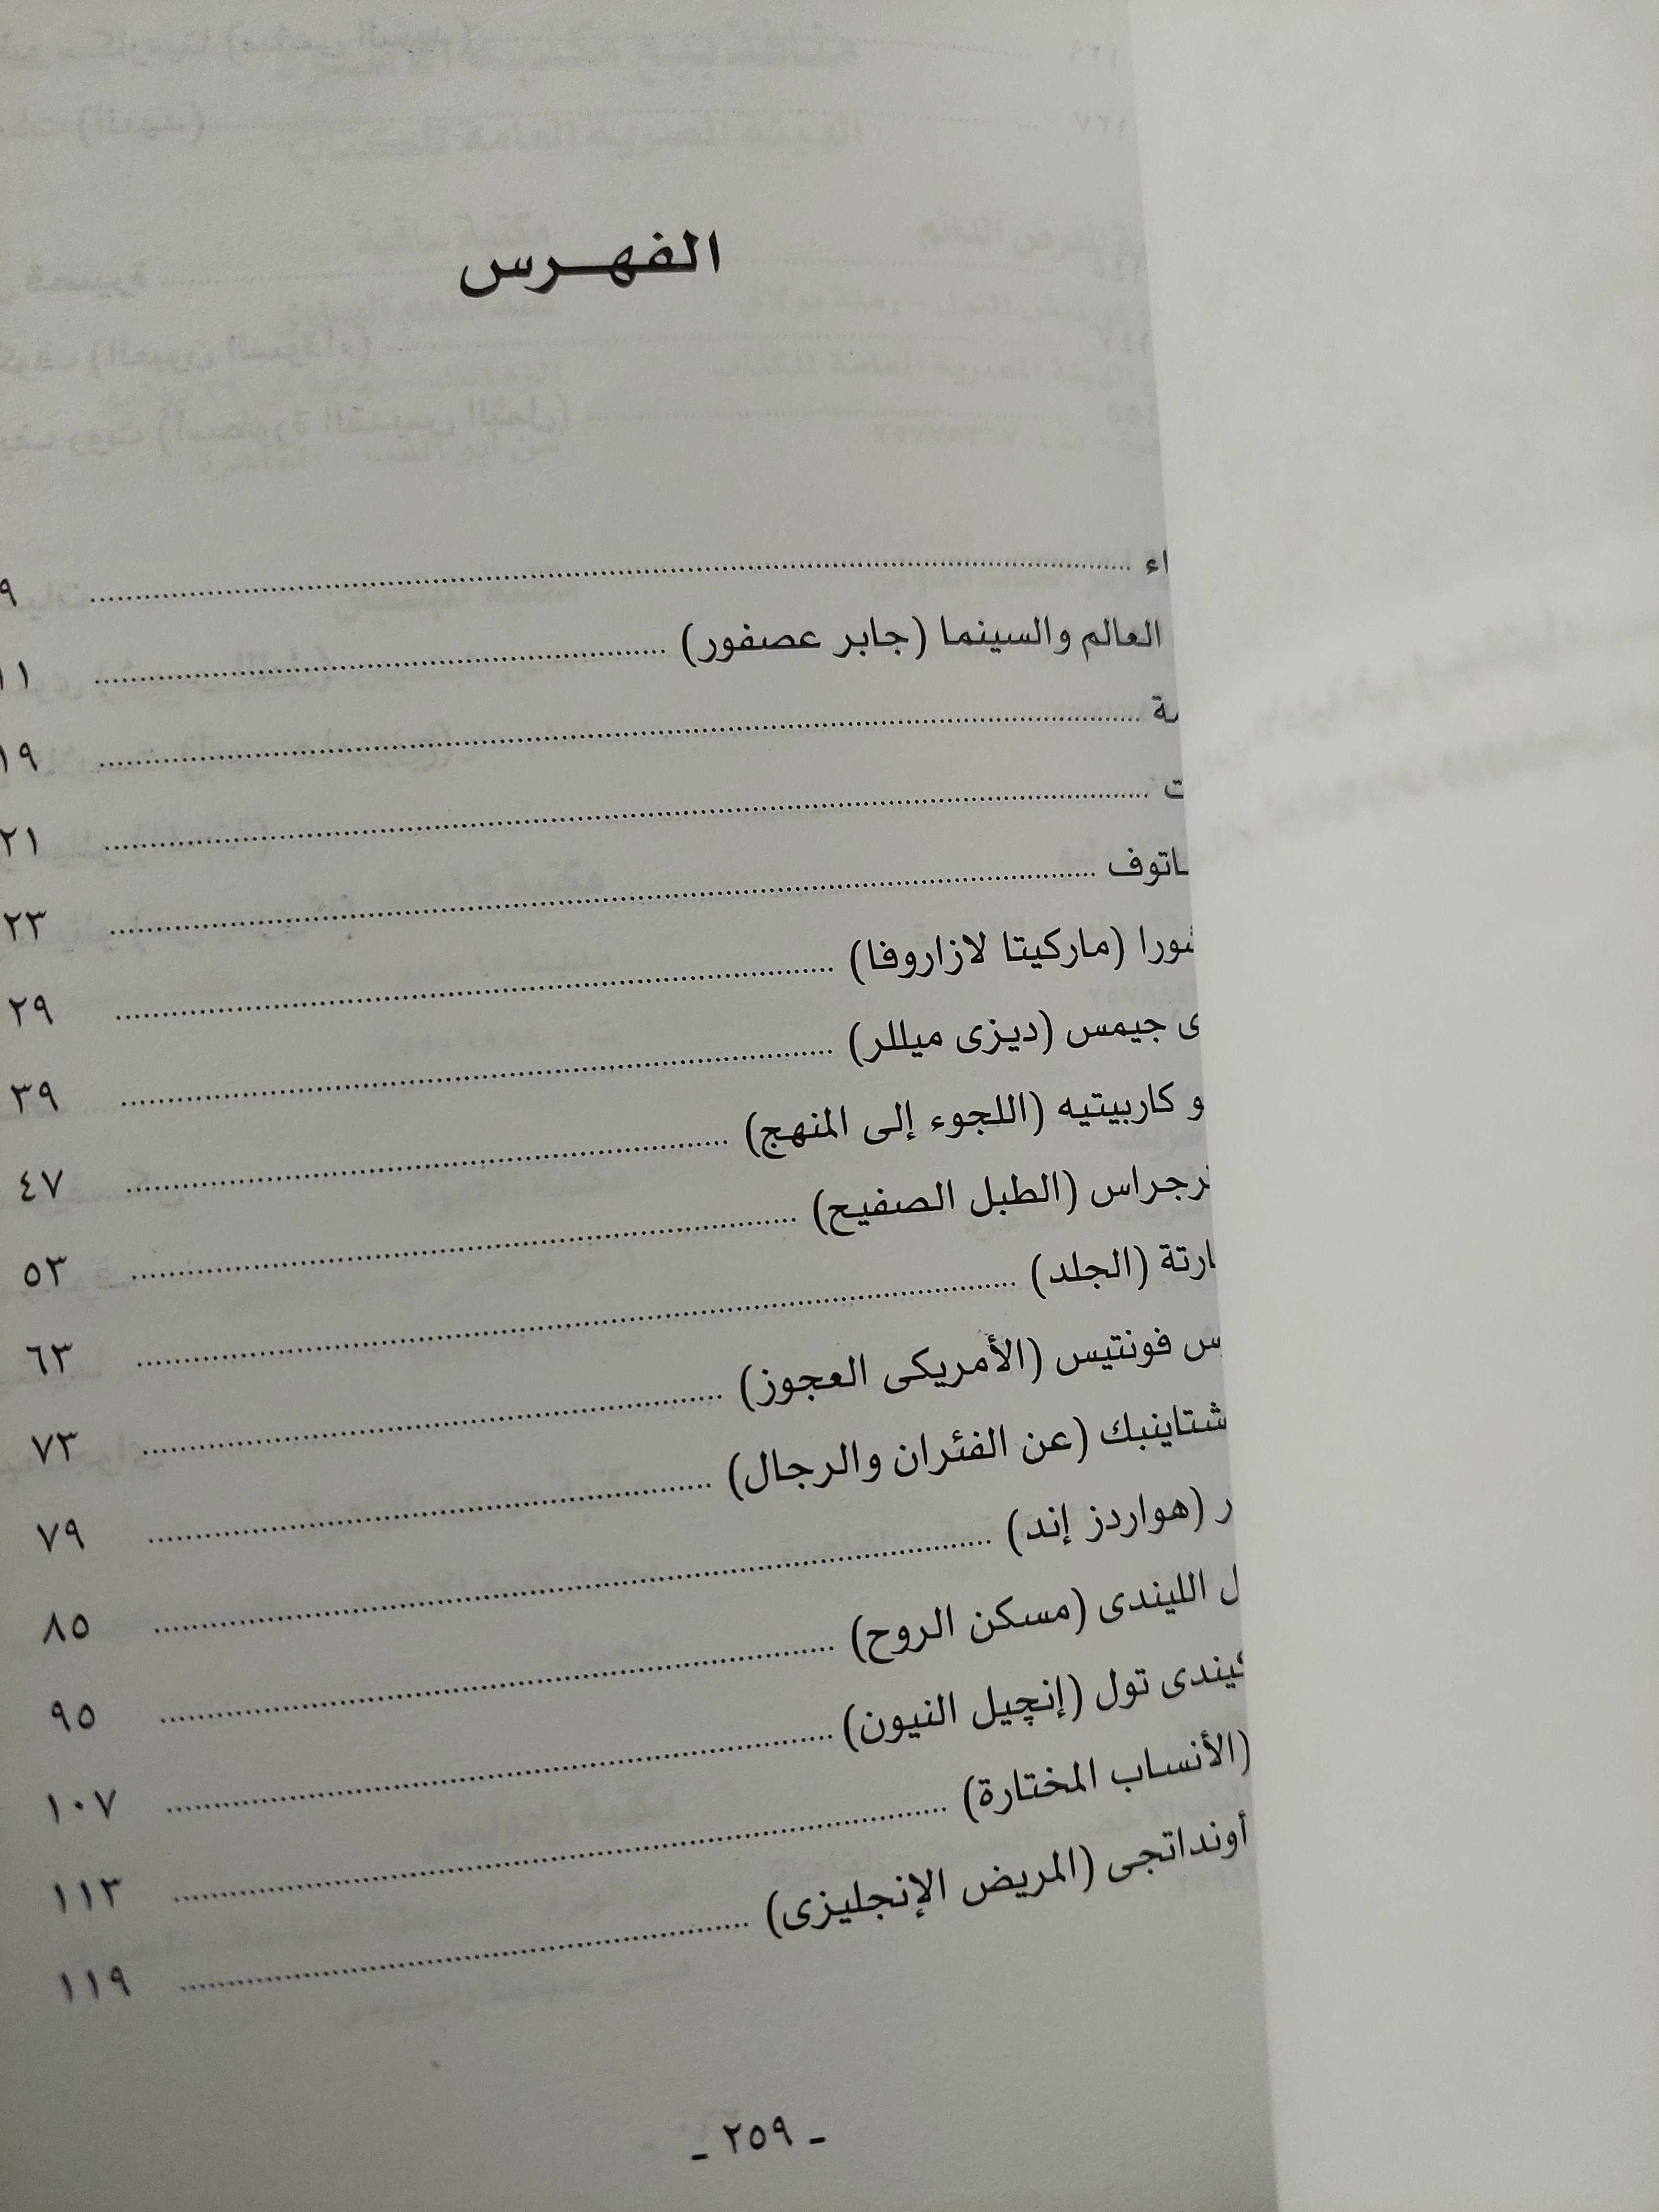 الفهـرس
٩
العالم والسينما (جابر عصفور) ........ ١١
........ ١٩
........ ٢١
........ ٢٣
(ماركيتا لازاروفا) ........ ٢٩
جيمس (ديزى ميللر) ........ ٣٩
كاربيتيه (اللجوء إلى المنهج) ........ ٤٧
(الطبل الصفيح) ........ ٥٣
(الجلد) ........ ٦٣
فونتيس (الأمريكى العجوز) ........ ٧٣
شتاينبك (عن الفئران والرجال) ........ ٧٩
(هواردز إند) ........ ٨٥
الليندى (مسكن الروح) ........ ٩٥
تول (إنچيل النيون) ........ ١٠٧
(الأنساب المختارة) ........ ١١٣
أونداتجى (المريض الإنجليزى) ........ ١١٩
ـ ٢٥٩ ـ